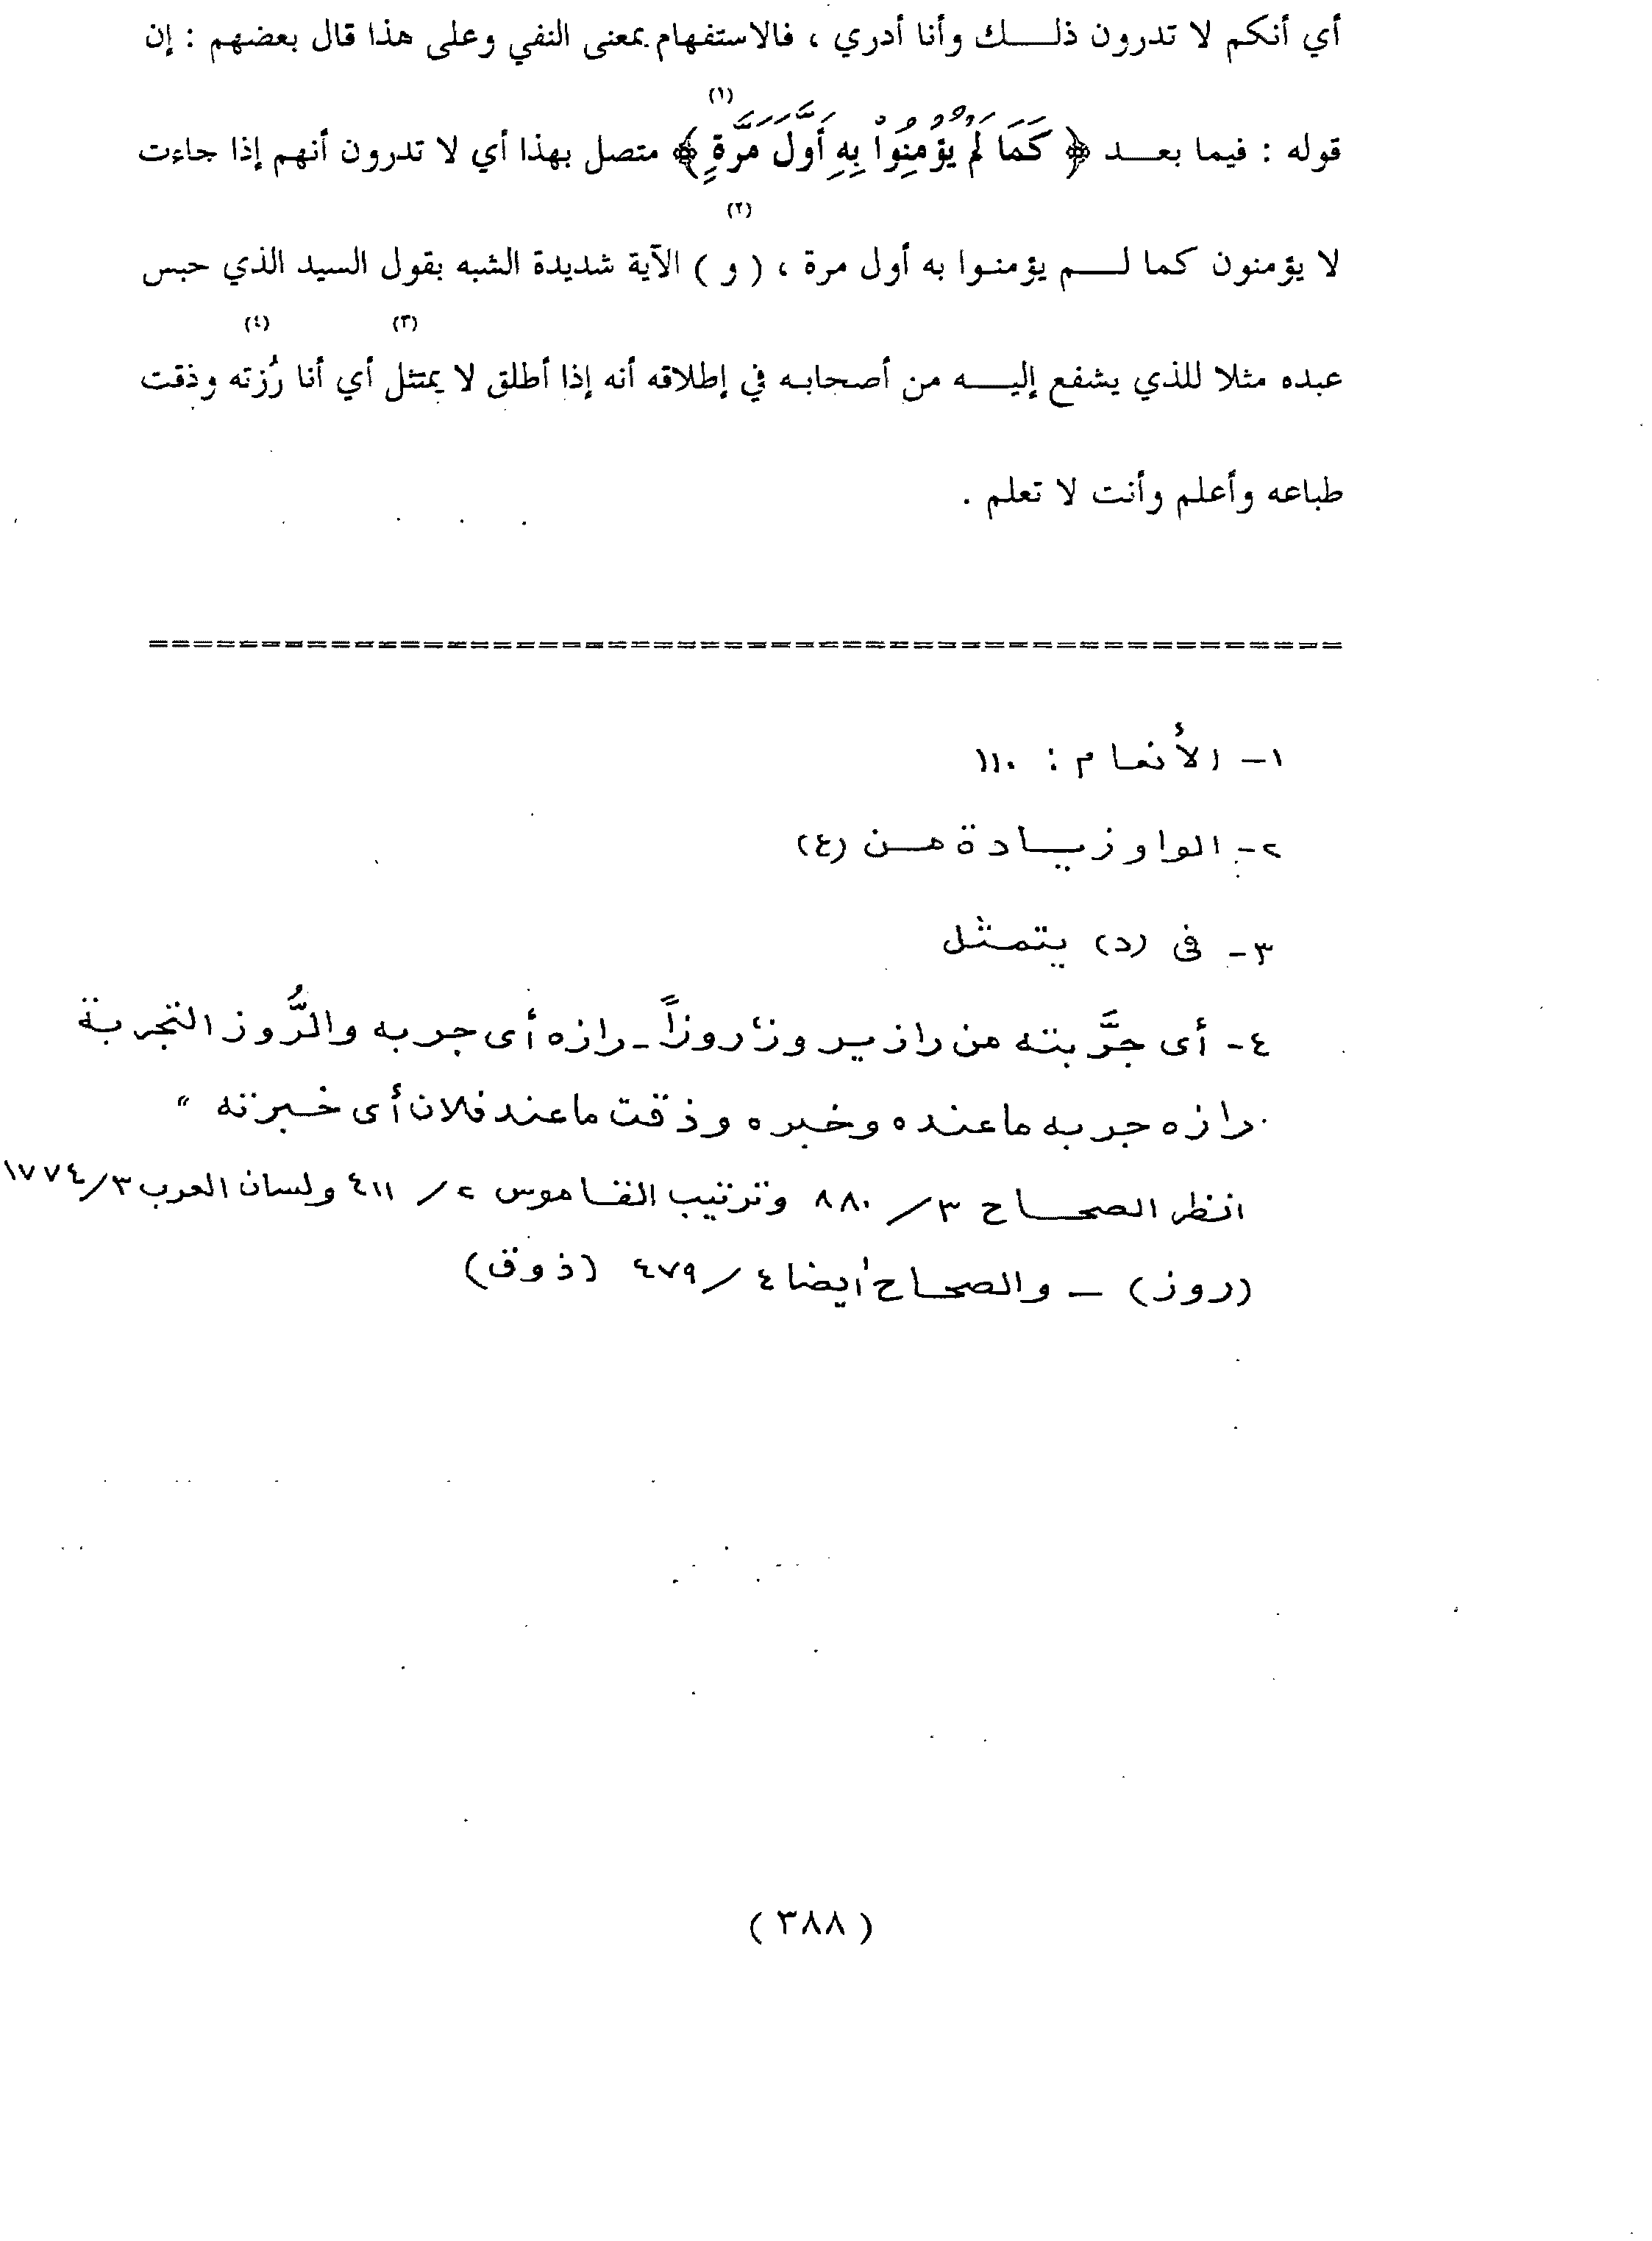 أي أنكم لا تدرون ذلك وأنا أدري ، فالاستفهام بمعنى النفي وعلى هذا قال بعضهم : إن
(١)
قوله : فيما بعد ﴿ كَمَا لَمْ يُؤْمِنُوا بِهِ أَوَّلَ مَرَّةٍ ﴾ متصل بهذا أي لا تدرون أنهم إذا جاءت
(٢)
لا يؤمنون كما لم يؤمنوا به أول مرة ، ( و ) الآية شديدة الشبه بقول السيد الذي حبس
(٣) (٤)
عبده مثلا للذي يشفع إليه من أصحابه في إطلاقه أنه إذا أطلق لا يمتثل أي أنا رُزته وذقت
طباعه وأعلم وأنت لا تعلم .
===================================================
١- الأنعام : ١١٠
٢- الواو زيادة من (ع)
٣- فى (د) يتمثل
٤- أى جرَّبته من راز يروز روزاً - رازه أى جربه والرُّوز التجربة
رازه جربه ما عنده وخبره وذقت ما عند فلان أى خبرته "
انظر الصحاح ٣/ ٨٨٠ وترتيب القاموس ٢/ ٤١١ ولسان العرب ٣/ ١٧٧٤
(روز) - والصحاح أيضا ٤/ ٤٧٩ (ذوق)
( ٣٨٨ )